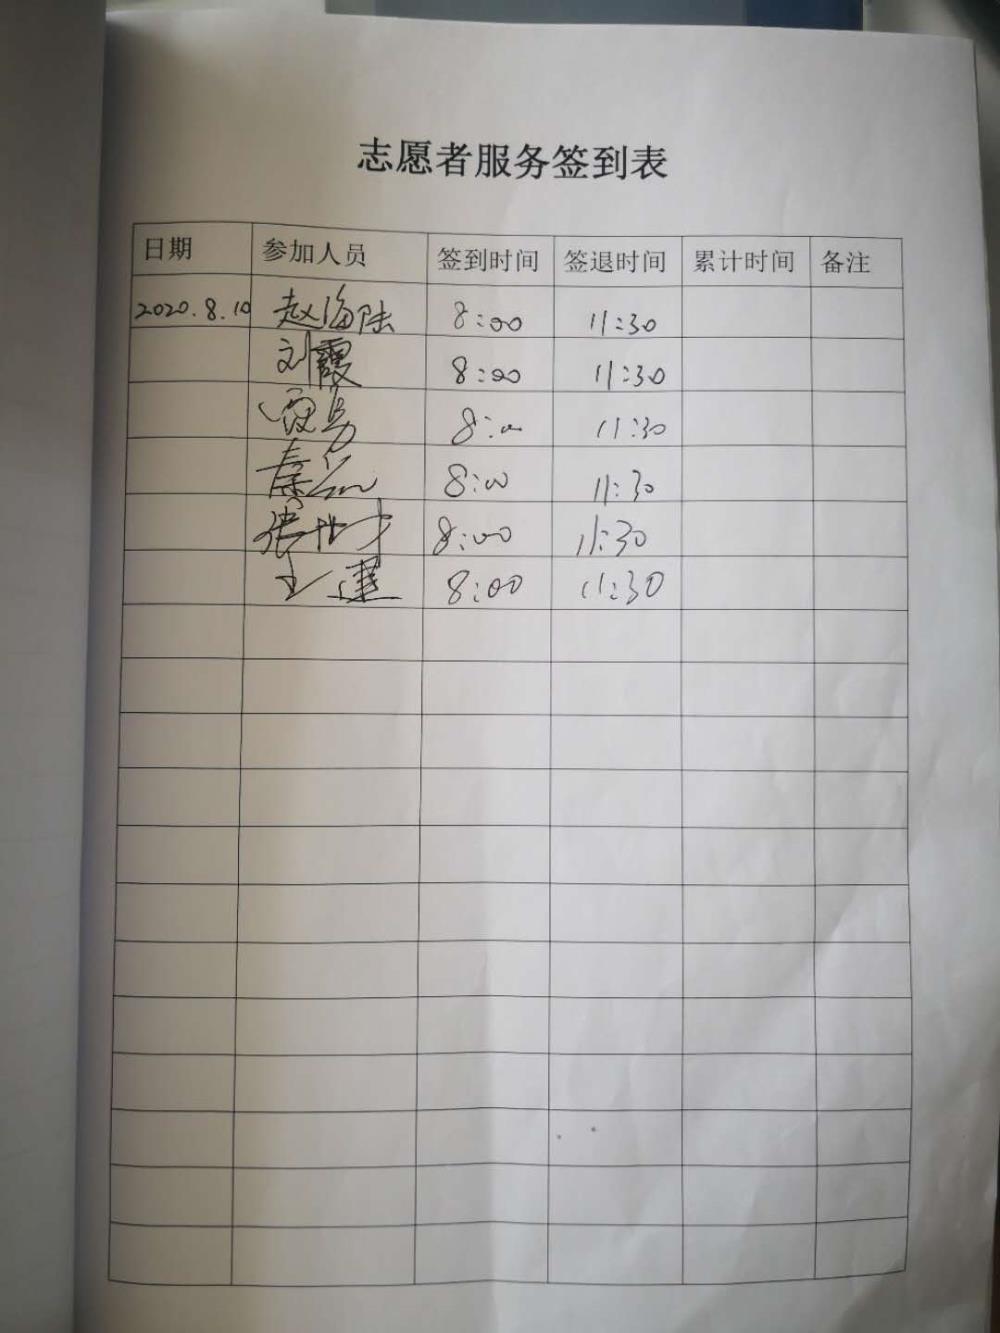 志愿者服务签到表
日期 参加人员 签到时间 签退时间 累计时间 备注
2020.8.10 赵海陆 8:00 11:30
刘霞 8:00 11:30
8:00 11:30
秦 8:00 11:30
张世才 8:00 11:30
王建 8:00 11:30